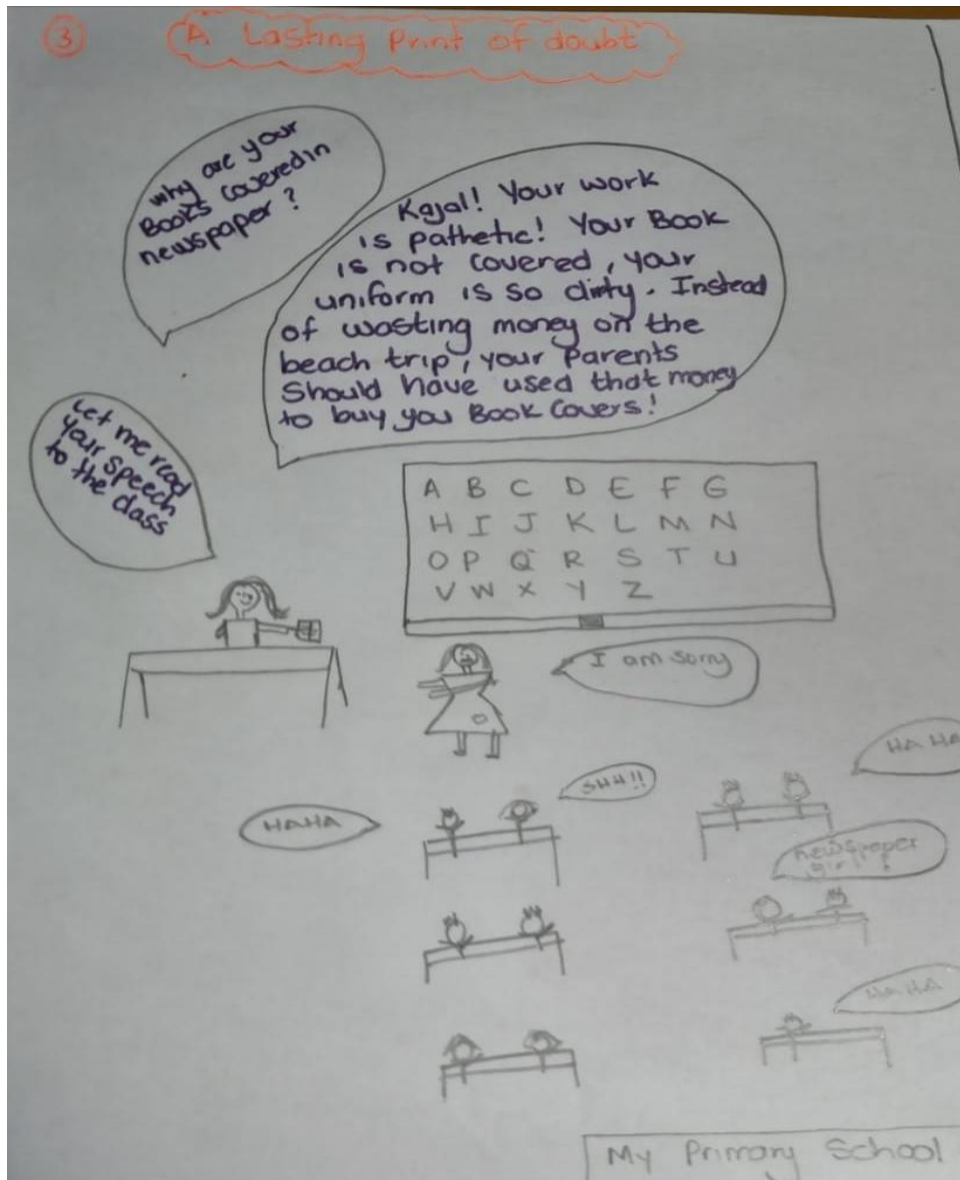 3
A Lasting Print of doubt
why are your
Books covered in
newspaper?
Kajal! Your work
is pathetic! Your Book
is not covered, your
uniform is so dirty. Instead
of wasting money on the
beach trip, your Parents
Should have used that money
to buy you Book Covers!
Let me read
your speech
to the class
A B C D E F G
H I J K L M N
O P Q R S T U
V W X Y Z
I am sorry
HA HA
SHH!!
HAHA
newspaper
girl!
HA HA
My Primary School